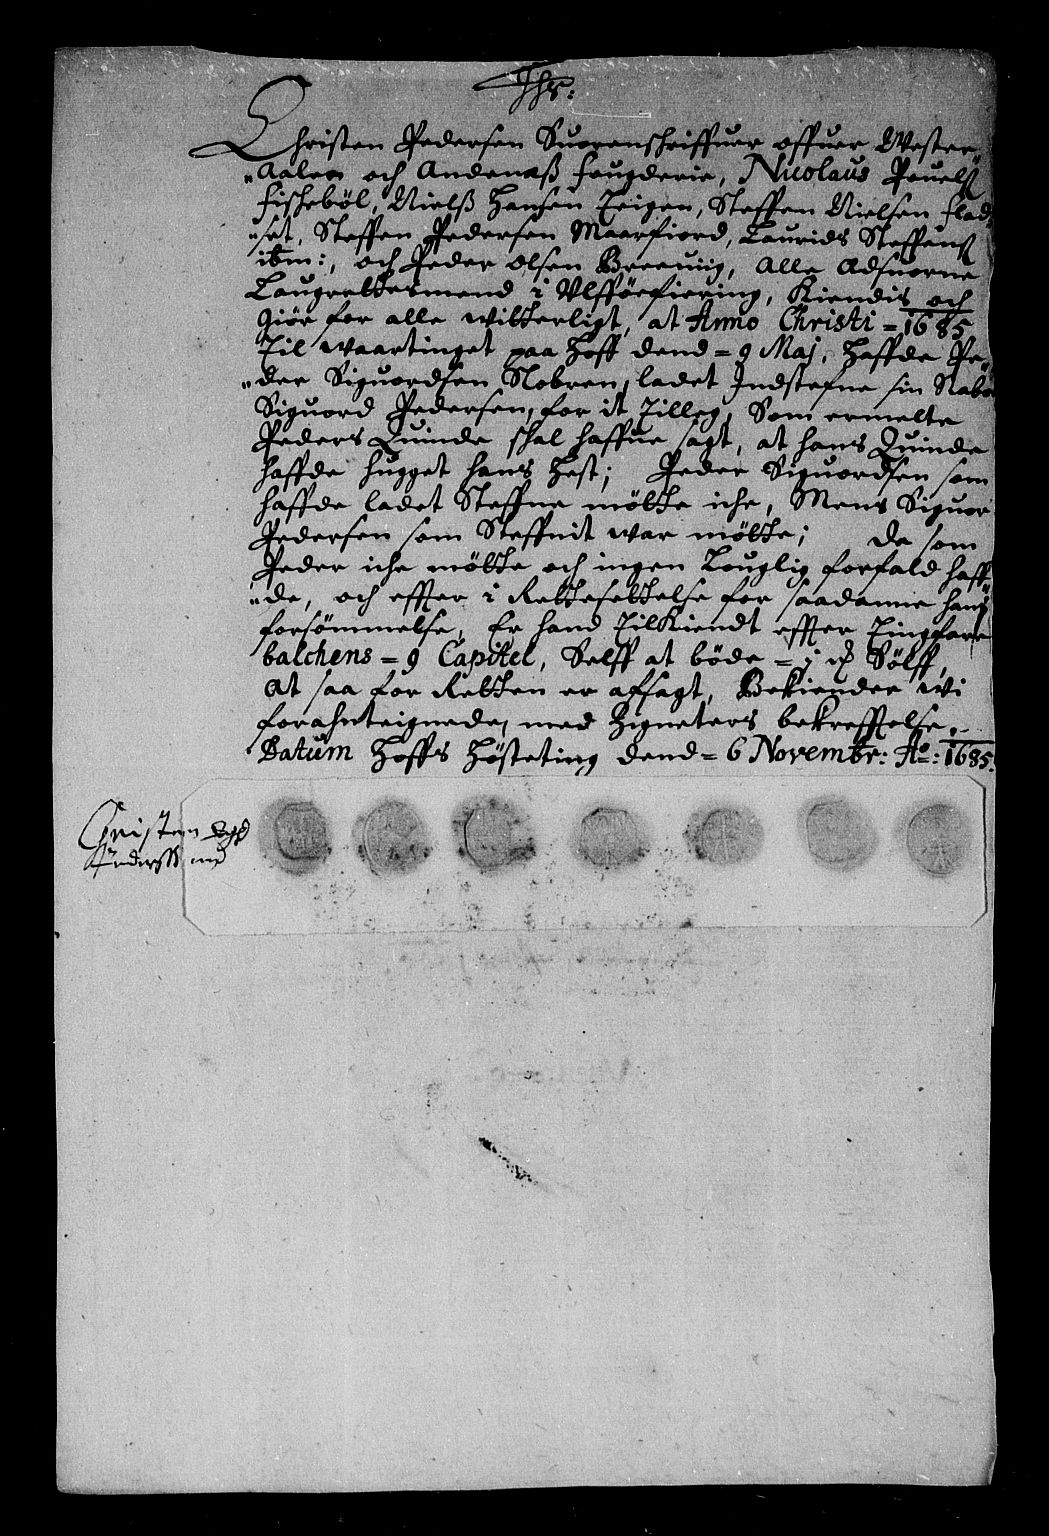 Jhs:
Christen Pedersen Suorenschriffuer offuer Wester-
"Aalen och Andenaß fougderie, Nicolaus Pouelß
Fischeböl, Nielß Hansen Teigen, Steffen Nielsen Flad-
"set, Steffen Pedersen Maarfiord, Laurids Steffenß
ibm:, och Peder Olsen Breeuiig, Alle Adsuorne
Laugrettesmend i Ulfföefiering, Kiendis och
Giör for alle witterligt, at Anno Christi = 1685
Til waartinget paa Hoff dend = 9 Maj, Haffde Pe-
"der Siguordsen Slobren, ladet Indstefne sin Nabo
Siguord Pedersen, for it Tilleg, Som ermelte
Peders Quinde schal haffue sagt, at hans Quinde
haffde hugget hans Hest; Peder Siguordsen som
haffde ladet Steffne mötte iche, Mens Siguor
Pedersen som Steffnit war mötte; da som
Peder iche mötte och ingen Louglig forfald haff-
"de, och effter i Rettesettelse for saadanne hans
forsömmelse, Er hand TilKiendt effter Tingfare
balchens = 9 Capitel, Selff at böde = j Sölff,
At saa for Retten er afsagt, Bekiender wi
forahnteignede, med Zigneters bekrefftelse.
Datum Hoffs Hösteting dend = 6 Novembr: Ao: 1685.
Christen
Pederss